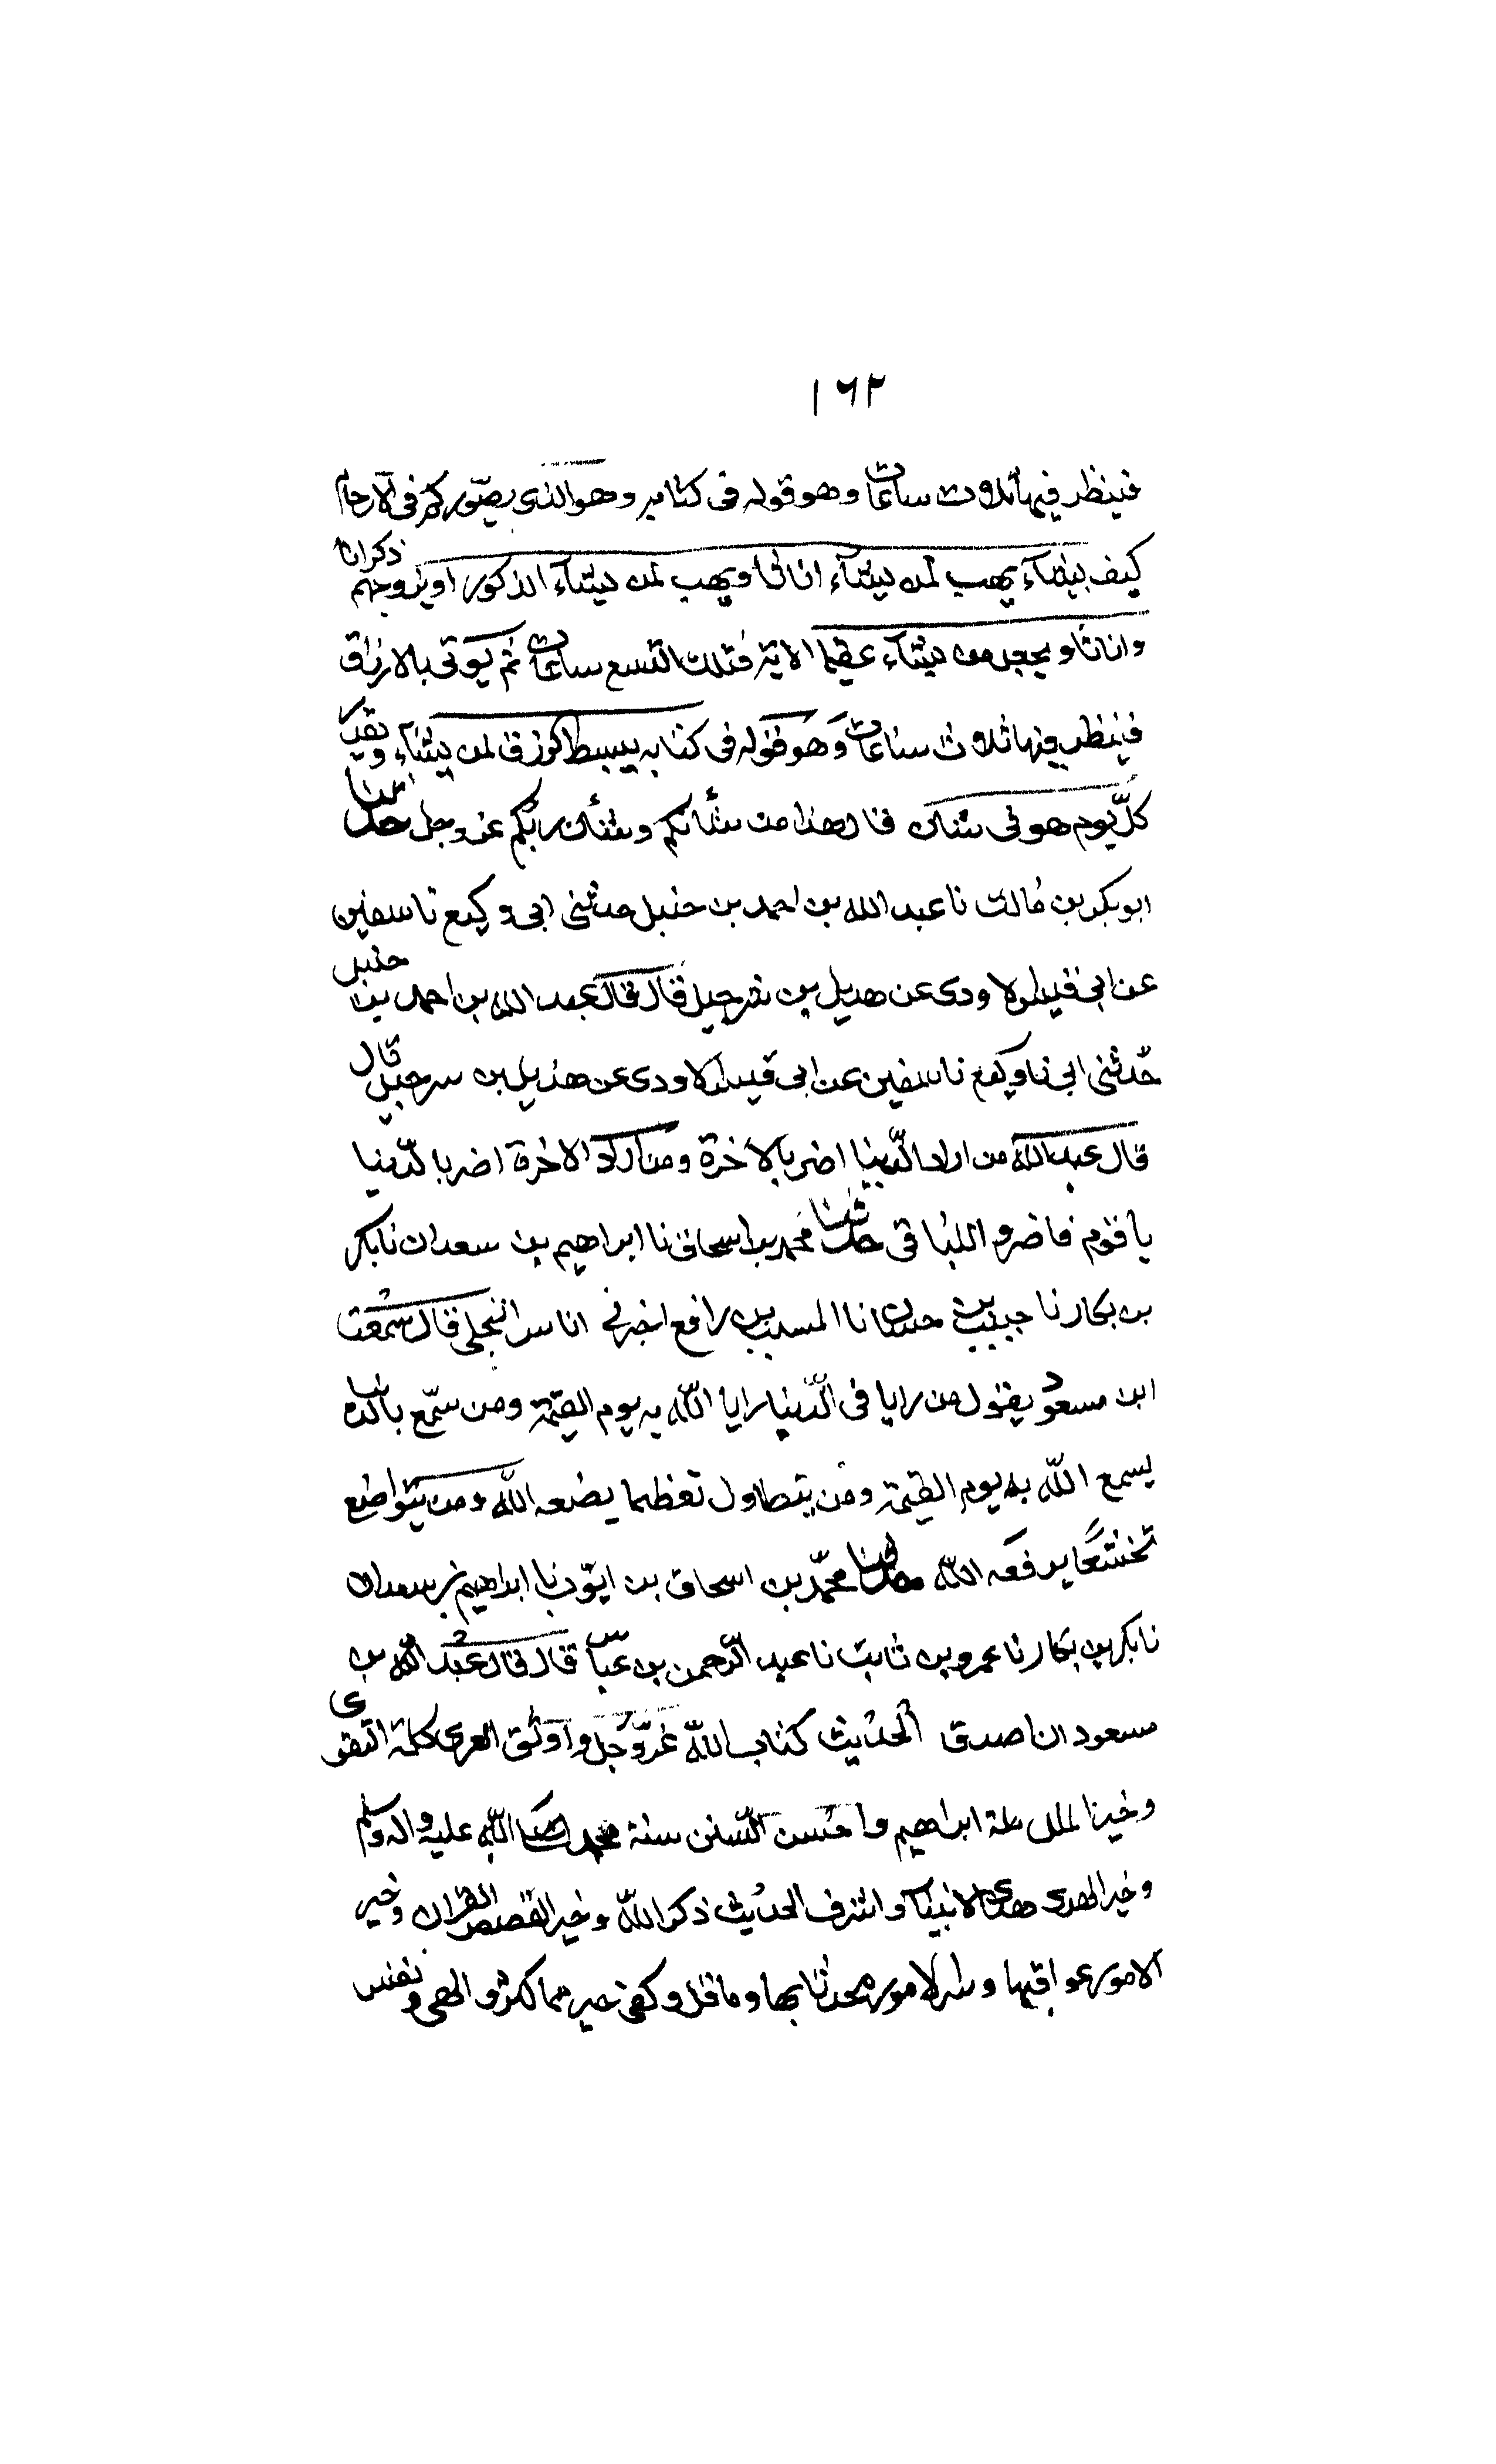 ١٦٢
فينظر فيها ثلاث ساعات وهو قوله فى كتابه وهو الذى يصوركم فى الارحام
كيف يشآء يهب لمن يشآء اناثا ويهب لمن يشآء الذكور او يزوجهم ذكرانا
واناثا ويجعل من يشآء عقيما الاية فتلك التسع ساعات ثم يوتى بالارزاق
فينظر فيها ثلاث ساعات وهو قوله فى كتابه يبسط الرزق لمن يشآء ويقدر
كلّ يوم هو فى شان قال هذا من شأنكم وشأن ربكم عز وجل حدثنا
ابو بكر بن مالك نا عبد الله بن احمد بن حنبل حدثنى ابى وكيع نا سفين
عن ابى قيس الاودى عن هديل بن شرجيل قال قال عبد الله بن احمد بن حنبل
حدثنى ابى نا وكيع نا سفين عن ابى قيس الاودى عن هذيل بن سرجيل قال
قال عبد الله من اراد الدّنيا اضر بالآخرة ومن اراد الاخرة اضر بالدّنيا
يا قوم فاضروا للباقى حدثنا محمد بن اسحاق نا ابراهيم بن سعدان نا بكر
بن بكار نا حبيب بن حسان نا المسيب بن رافع اخبرنى اناس البجلى قال سمعت
ابن مسعود يقول من رايا فى الدّنيا رايا اللّه به يوم القيمة ومن سمّع بالدنيا
يسمع اللّه به يوم القيمة ومن يتطاول تعظما يضعه اللّه ومن يتواضع
تخشعًا يرفعه اللّه حدثنا محمّد بن اسحاق بن ايّوب نا ابراهيم بن سعدان
نا بكر بن بكار نا عمرو بن ثابت نا عبد الرّحمن بن عبّاس قال قال عبد اللّه بن
مسعود ان اصدق الحديث كتاب اللّه عزّ وجل واوثق العرى كلمة التقوى
وخير الملل ملة ابراهيم واحسن السّنن سنة محمد صلى اللّه عليه واله وسلم
وخير الهدى هدى الانبيآء واشرف الحديث ذكر اللّه وخير القصص القران وخير
الامور عواقبها وشر الامور محدثاتها وما قل وكفى خير مما كثر والهى ونفس